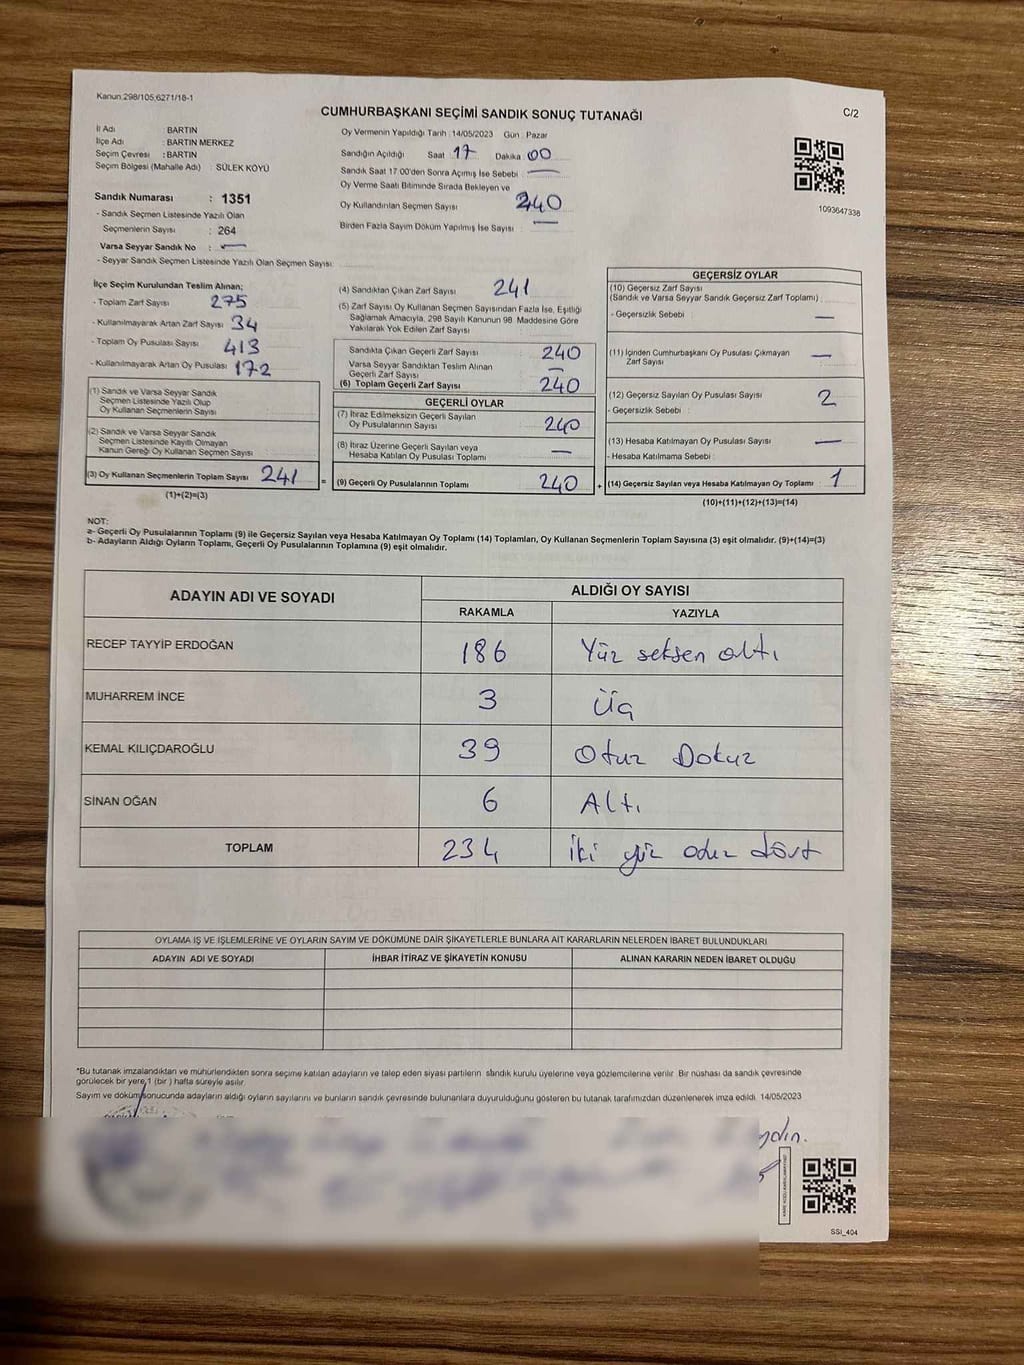 Kanun:298/105,6271/18-1
CUMHURBAŞKANI SEÇİMİ SANDIK SONUÇ TUTANAĞI
C/2
İl Adı : BARTIN
İlçe Adı : BARTIN MERKEZ
Seçim Çevresi : BARTIN
Seçim Bölgesi (Mahalle Adı) : SÜLEK KÖYÜ
Oy Vermenin Yapıldığı Tarih :14/05/2023 Gün : Pazar
Sandığın Açıldığı Saat 17 Dakika 00
Sandık Saat 17:00'den Sonra Açımış İse Sebebi : —
Oy Verme Saati Bitiminde Sırada Bekleyen ve
Oy Kullandırılan Seçmen Sayısı 240
Birden Fazla Sayım Döküm Yapılmış İse Sayısı : —
1093647338
Sandık Numarası : 1351
- Sandık Seçmen Listesinde Yazılı Olan
Seçmenlerin Sayısı : 264
Varsa Seyyar Sandık No : —
- Seyyar Sandık Seçmen Listesinde Yazılı Olan Seçmen Sayısı:
İlçe Seçim Kurulundan Teslim Alınan;
- Toplam Zarf Sayısı 275
- Kullanılmayarak Artan Zarf Sayısı 34
- Toplam Oy Pusulası Sayısı 413
- Kullanılmayarak Artan Oy Pusulası 172
(1) Sandık ve Varsa Seyyar Sandık
Seçmen Listesinde Yazılı Olup
Oy Kullanan Seçmenlerin Sayısı :
(2) Sandık ve Varsa Seyyar Sandık
Seçmen Listesinde Kayıtlı Olmayan
Kanun Gereği Oy Kullanan Seçmen Sayısı :
(3) Oy Kullanan Seçmenlerin Toplam Sayısı 241 =
(1)+(2)=(3)
(4) Sandıktan Çıkan Zarf Sayısı 241
(5) Zarf Sayısı Oy Kullanan Seçmen Sayısından Fazla İse, Eşitliği
Sağlamak Amacıyla, 298 Sayılı Kanunun 98. Maddesine Göre
Yakılarak Yok Edilen Zarf Sayısı :
Sandıkta Çıkan Geçerli Zarf Sayısı 240
Varsa Seyyar Sandıktan Teslim Alınan
Geçerli Zarf Sayısı —
(6) Toplam Geçerli Zarf Sayısı 240
GEÇERLİ OYLAR
(7) İtiraz Edilmeksizin Geçerli Sayılan
Oy Pusulalarının Sayısı : 240
(8) İtiraz Üzerine Geçerli Sayılan veya
Hesaba Katılan Oy Pusulası Toplamı —
(9) Geçerli Oy Pusulalarının Toplamı 240 +
GEÇERSİZ OYLAR
(10) Geçersiz Zarf Sayısı
(Sandık ve Varsa Seyyar Sandık Geçersiz Zarf Toplamı) :
- Geçersizlik Sebebi : —
(11) İçinden Cumhurbaşkanı Oy Pusulası Çıkmayan
Zarf Sayısı —
(12) Geçersiz Sayılan Oy Pusulası Sayısı 2
- Geçersizlik Sebebi :
(13) Hesaba Katılmayan Oy Pusulası Sayısı —
- Hesaba Katılmama Sebebi :
(14) Geçersiz Sayılan veya Hesaba Katılmayan Oy Toplamı : 1
(10)+(11)+(12)+(13)=(14)
NOT:
a- Geçerli Oy Pusulalarının Toplamı (9) ile Geçersiz Sayılan veya Hesaba Katılmayan Oy Toplamı (14) Toplamları, Oy Kullanan Seçmenlerin Toplam Sayısına (3) eşit olmalıdır. (9)+(14)=(3)
b- Adayların Aldığı Oyların Toplamı, Geçerli Oy Pusulalarının Toplamına (9) eşit olmalıdır.
ADAYIN ADI VE SOYADI
ALDIĞI OY SAYISI
RAKAMLA YAZIYLA
RECEP TAYYİP ERDOĞAN 186 Yüz seksen altı
MUHARREM İNCE 3 Üç
KEMAL KILIÇDAROĞLU 39 Otuz Dokuz
SİNAN OĞAN 6 Altı
TOPLAM 234 iki yüz oduz dört
OYLAMA İŞ VE İŞLEMLERİNE VE OYLARIN SAYIM VE DÖKÜMÜNE DAİR ŞİKAYETLERLE BUNLARA AİT KARARLARIN NELERDEN İBARET BULUNDUKLARI
ADAYIN ADI VE SOYADI İHBAR İTİRAZ VE ŞİKAYETİN KONUSU ALINAN KARARIN NEDEN İBARET OLDUĞU
*Bu tutanak imzalandıktan ve mühürlendikten sonra seçime katılan adayların ve talep eden siyasi partilerin sandık kurulu üyelerine veya gözlemcilerine verilir. Bir nüshası da sandık çevresinde
görülecek bir yere 1 (bir ) hafta süreyle asılır.
Sayım ve döküm sonucunda adayların aldığı oyların sayılarını ve bunların sandık çevresinde bulunanlara duyurulduğunu gösteren bu tutanak tarafımızdan düzenlenerek imza edildi. 14/05/2023
SSI_404